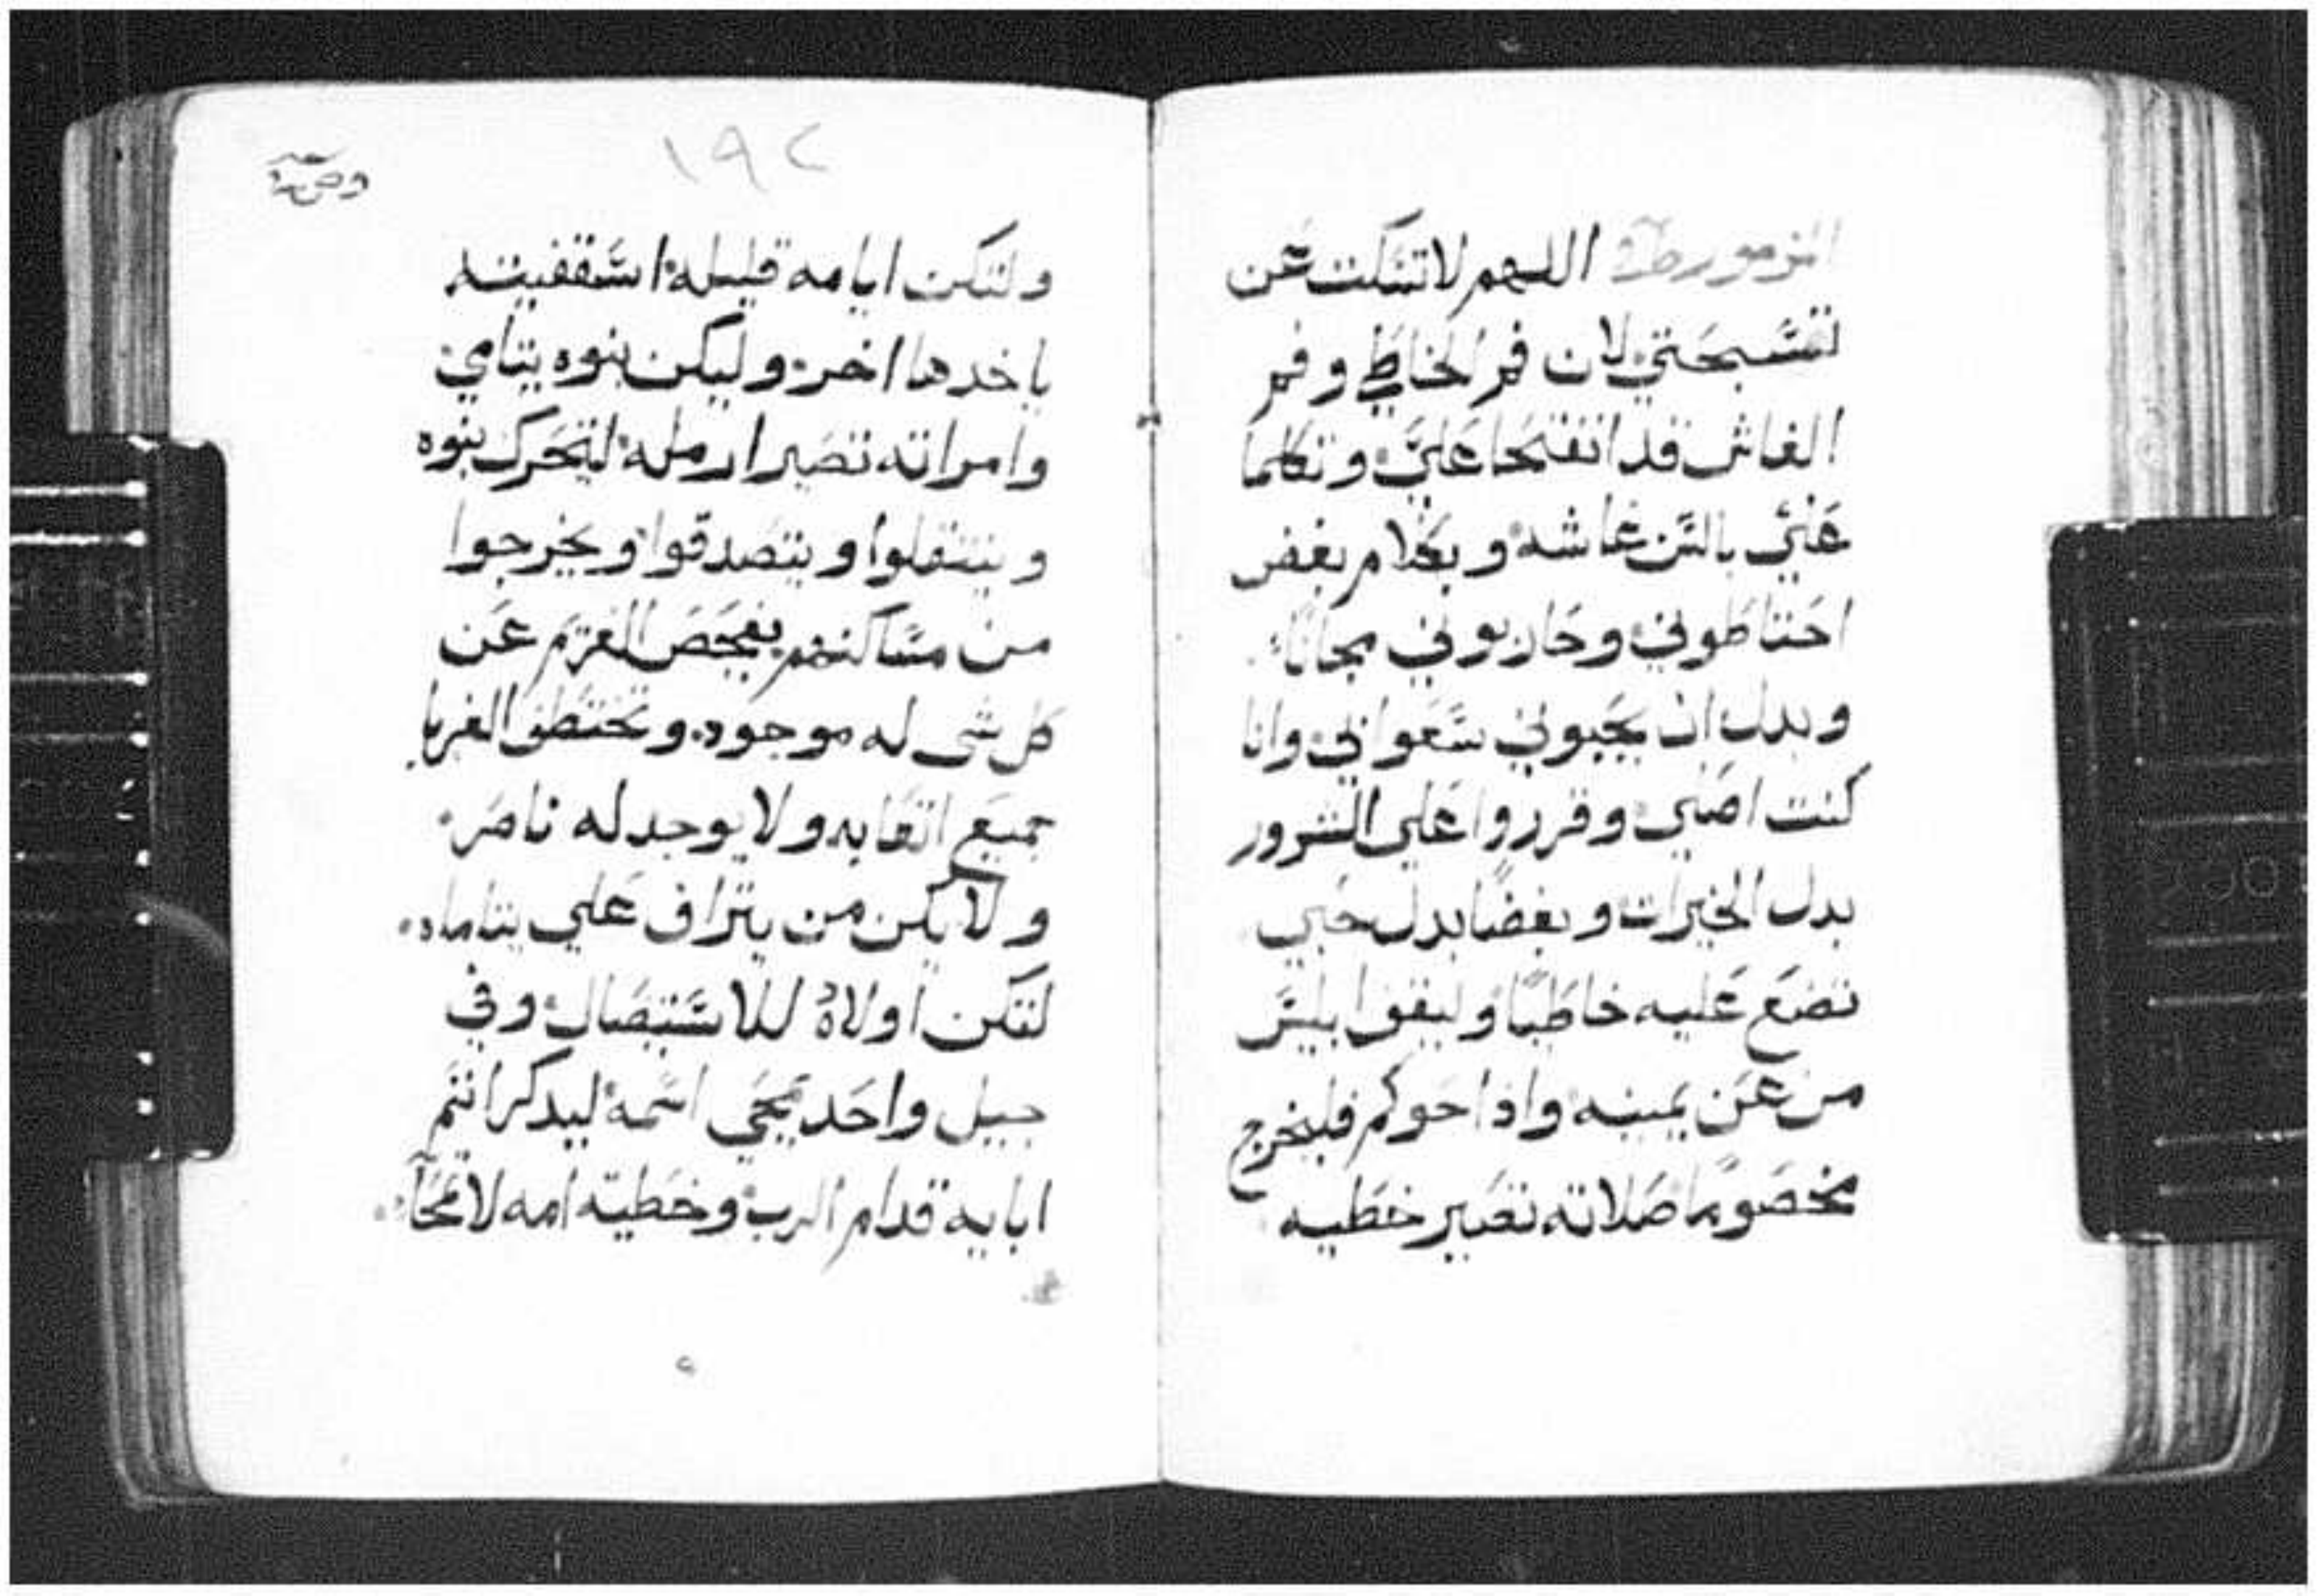 المزمور اللهم لا تسكت عن
تسبحتي لان فم الخاطي وفم
الغاش قد انفتحا علي وتكلما
علي بالسن غاشه وبكلام بغض
احتاطوني وحاربوني مجاناً
وبدل ان يحبوني سعوا بي وانا
كنت اصلي وقرروا علي الشرور
بدل الخيرات وبغضا بدل حبي
تضع عليه خاطيا وليقف ابليس
من عن يمينه واذا حوكم فليخرج
مخصوما صلاته تصير خطيه
١٩٢
ولتكن ايامه قليله اسقفيته
ياخدها اخر وليكن بنوه يتامي
وامراته تصير ارمله ليتحرك بنوه
وينتقلوا ويتصدقوا ويخرجوا
من مساكنهم يفحص الغريم عن
كل شى له موجود وتختطف الغربا
جميع اتعابه ولا يوجد له ناصر
ولا يكن من يتراف علي يتاماه
لتكن اولاده للاستيصال وفي
جيل واحد يمحي اسمه ليدكر اتم
ابايه قدام الرب وخطية امه لا تمحا